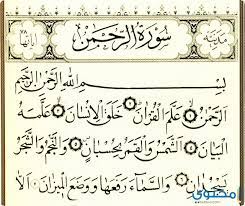 مدنية
سُورَةُ الرَّحْمَٰن
آياتها
بِسْمِ اللَّهِ الرَّحْمَٰنِ الرَّحِيمِ
الرَّحْمَٰنُ ۝ عَلَّمَ الْقُرْآنَ ۝ خَلَقَ الْإِنسَانَ ۝ عَلَّمَهُ
الْبَيَانَ ۝ الشَّمْسُ وَالْقَمَرُ بِحُسْبَانٍ ۝ وَالنَّجْمُ وَالشَّجَرُ
يَسْجُدَانِ ۝ وَالسَّمَاءَ رَفَعَهَا وَوَضَعَ الْمِيزَانَ ۝ أَلَّا
محتوى